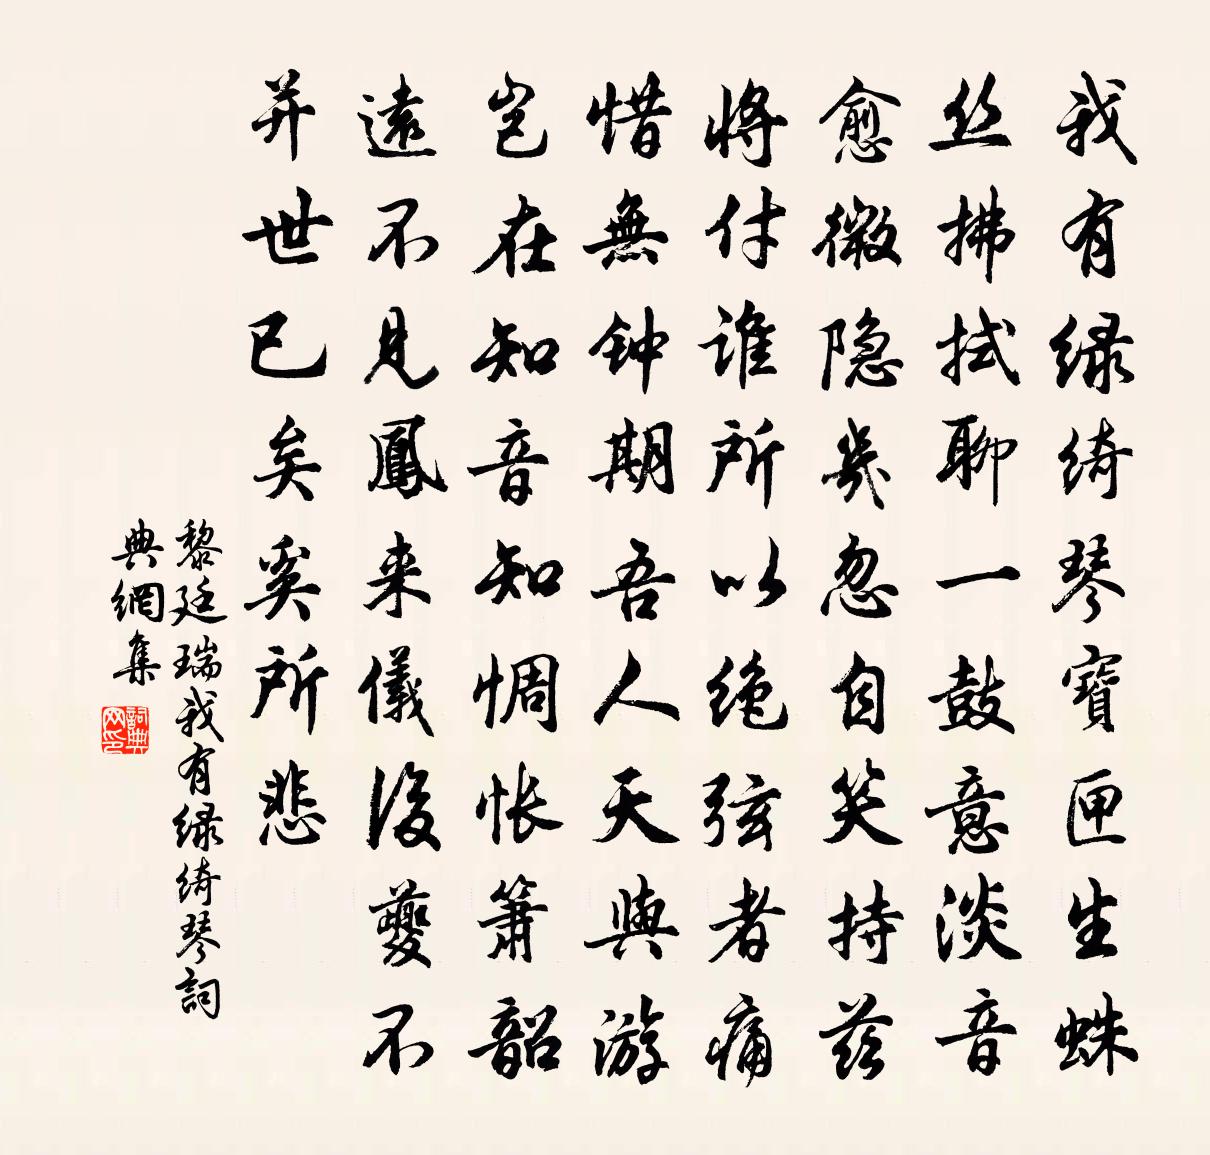 我有绿绮琴寶匣生蛛
丝拂拭聊一鼓意淡音
愈微隐幾忽自笑持兹
將付谁所以绝弦者痛
惜無钟期吾人天與游
岂在知音知惆怅箫韶
遠不見鳳来儀後夔不
并世已矣奚所悲
黎廷瑞我有绿绮琴詞
典網集
詞典网印